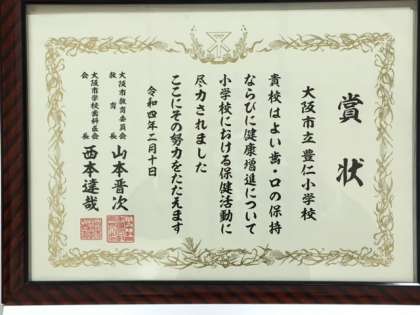 賞状
大阪市立豊仁小学校
貴校はよい歯・口の保持
ならびに健康増進について
小学校における保健活動に
尽力されました
ここにその努力をたたえます
令和四年二月十日
大阪市教育委員会
教育長 山本晋次
大阪市学校歯科医会
会長 西本達哉